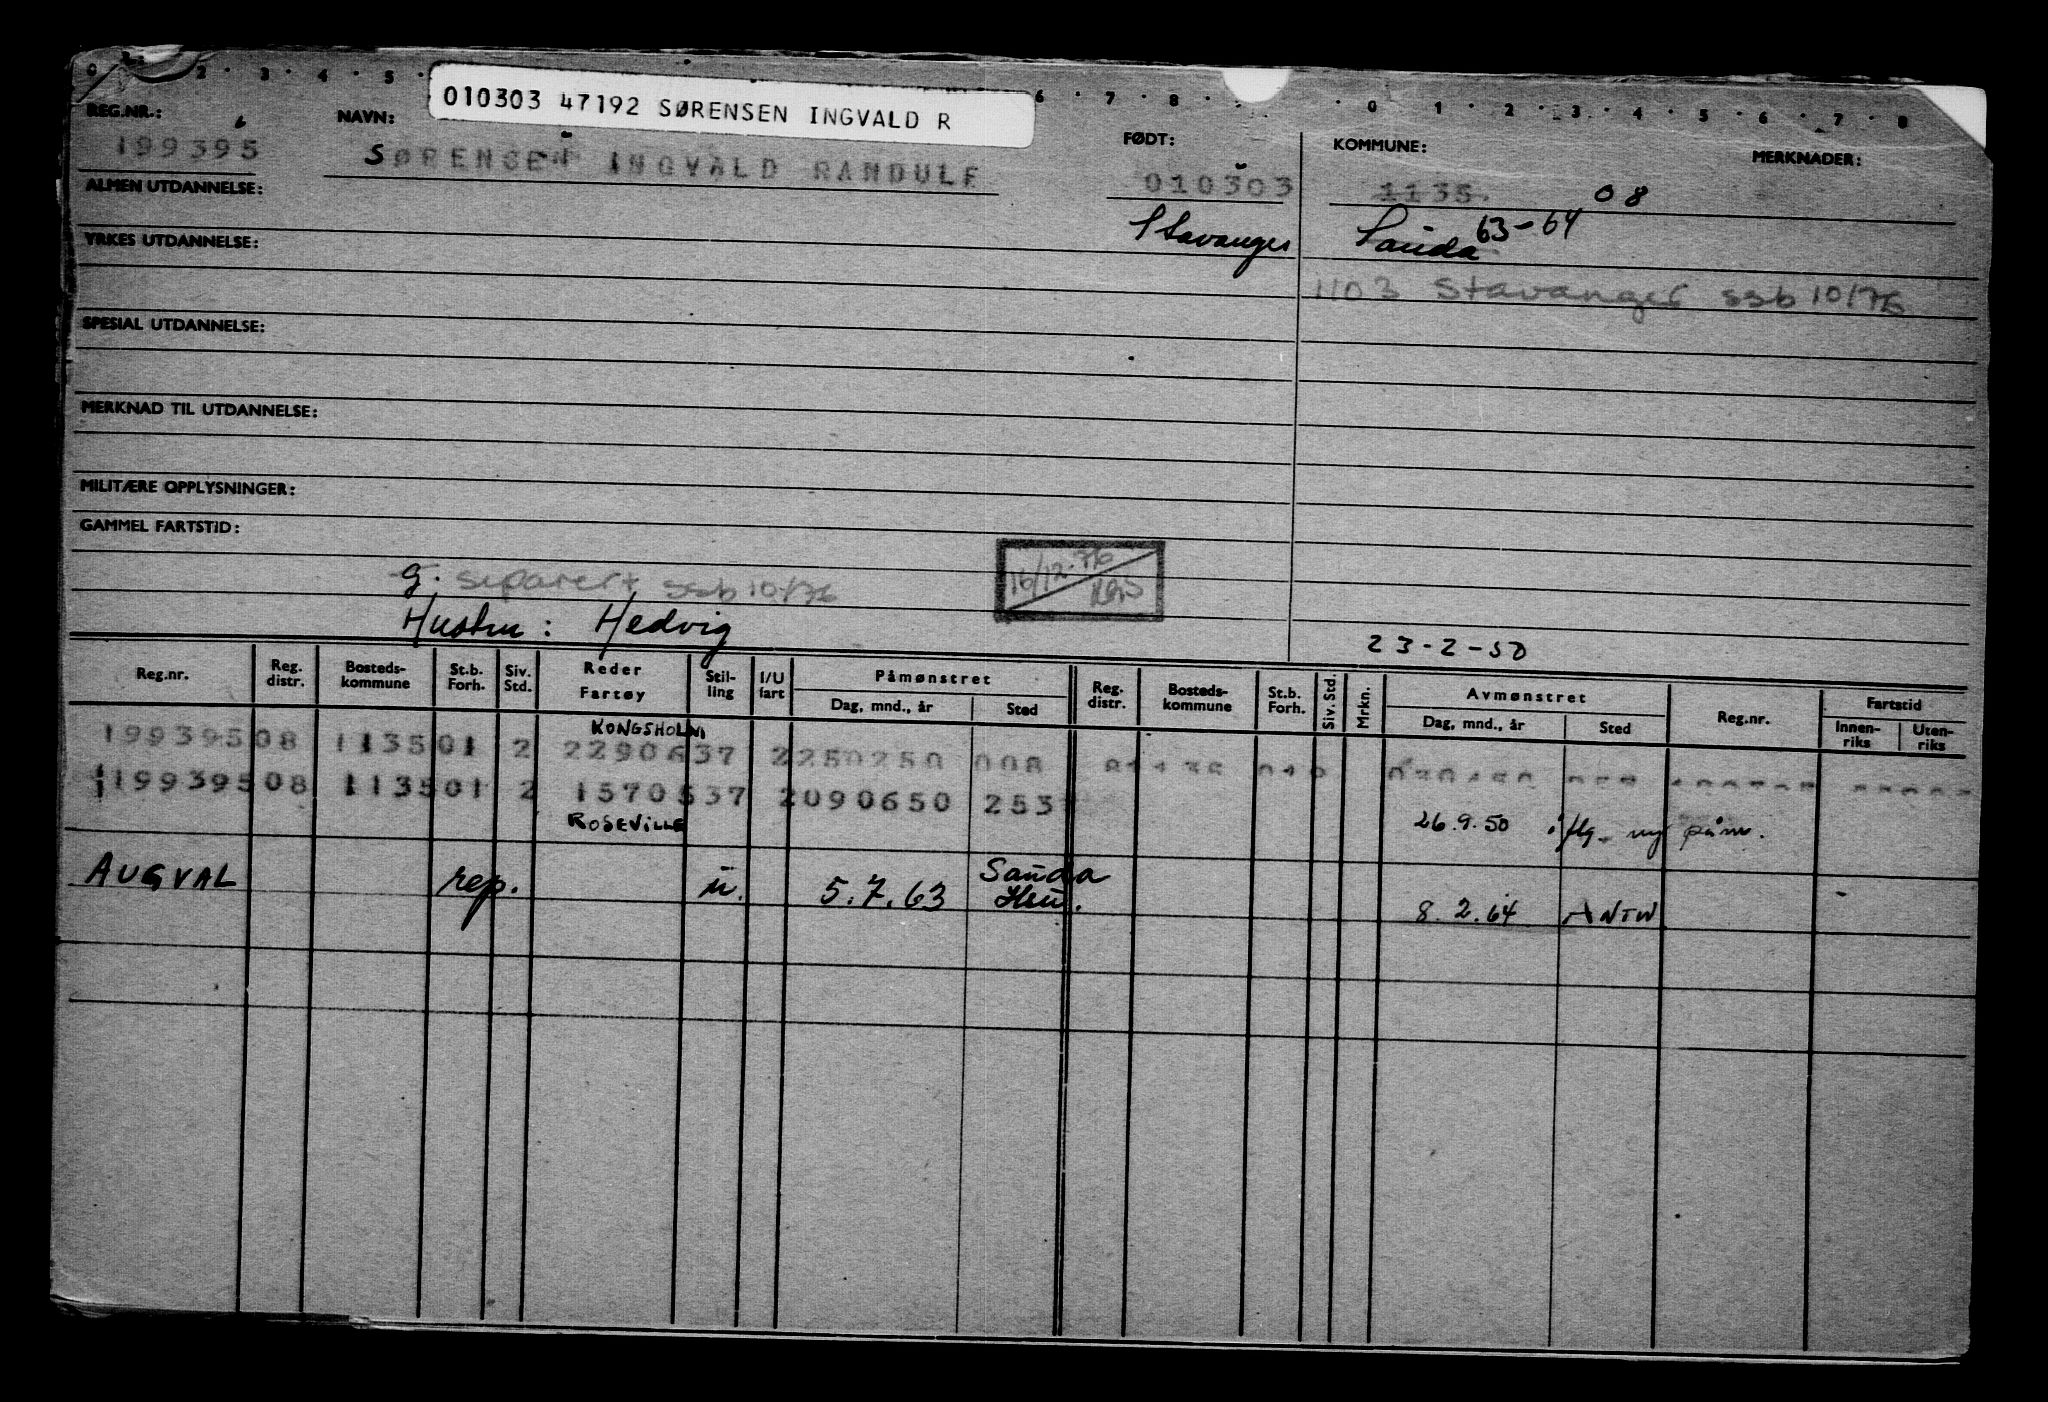 0 2 3 4 5 6 7 8 0 1 2 3 4 5 6 7 8
010303 47192 SØRENSEN INGVALD R
REG.NR.: NAVN: FØDT: KOMMUNE: MERKNADER:
199395 SØRENSEN INGVALD RANDULF 010303 1135 08
ALMEN UTDANNELSE:
Stavanger Sauda 63-64
YRKES UTDANNELSE:
1103 Stavanger ssb 10/76
SPESIAL UTDANNELSE:
MERKNAD TIL UTDANNELSE:
MILITÆRE OPPLYSNINGER:
GAMMEL FARTSTID:
g. separert ssb 10/76 16/12-76
Hustru: Hedvig
23-2-50
Reg.nr. Reg. distr. Bosteds-kommune St.b. Forh. Siv. Std. Reder Fartøy Stil-ling I/U fart Påmønstret Dag, mnd., år Sted Reg. distr. Bosteds-kommune St.b. Forh. Siv. Std. Mrkn. Avmønstret Dag, mnd., år Sted Reg.nr. Fartstid Innen-riks Uten-riks
KONGSHOLM
199395 08 1135 01 2 22906 37 2 250250 008
199395 08 1135 01 2 15705 37 2 090650 253
ROSEVILLE 26.9.50 iflg. ny påm.
AUGVAL rep. u. 5.7.63 Sauda Hsu. 8.2.64 ANTW